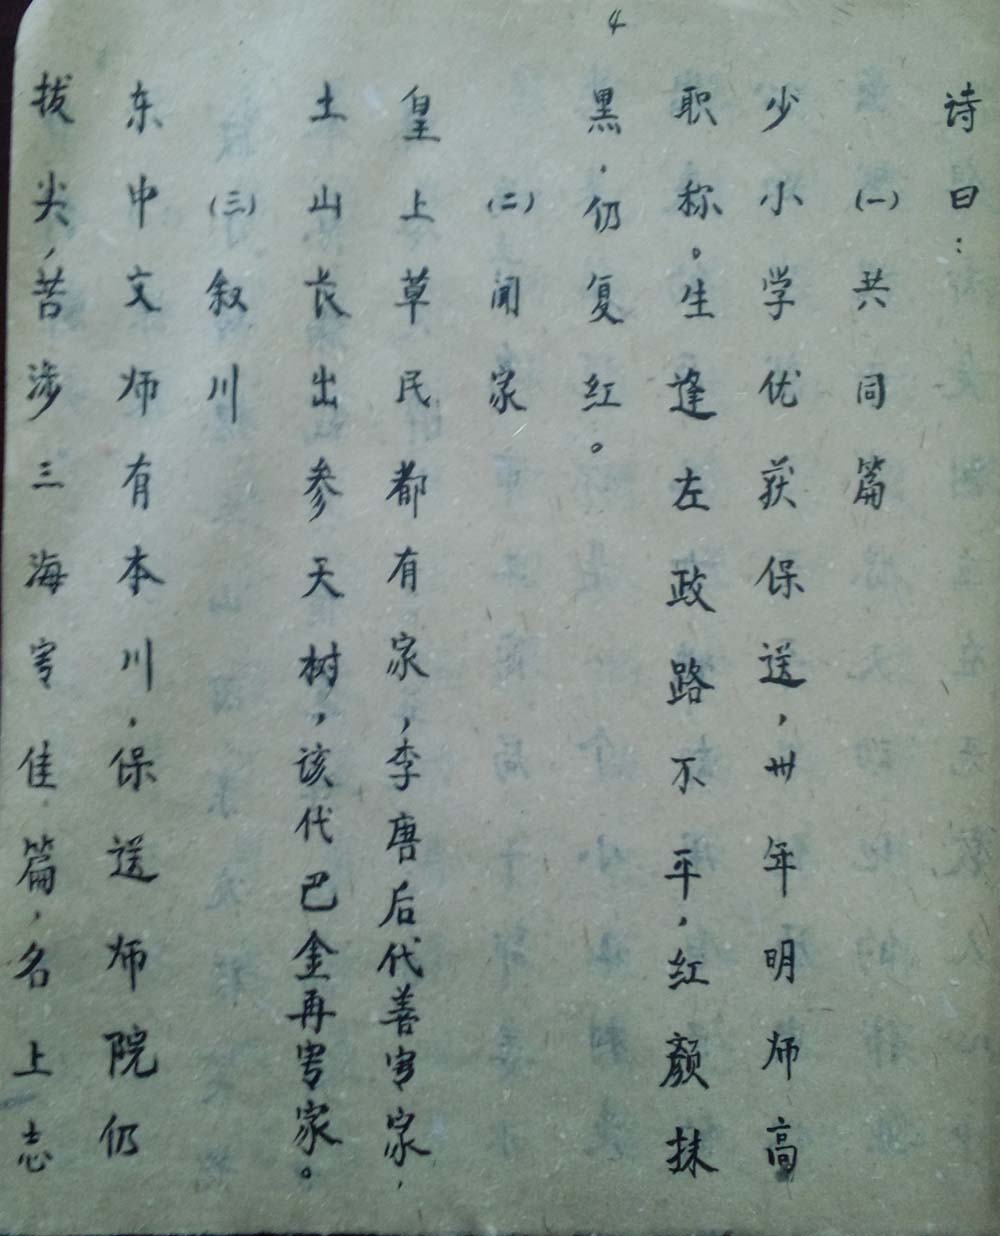 4
诗曰：
(一)共同篇
少小学优获保送，卅年明师高
职称。生逢左政路不平，红颜抹
黑，仍复红。
(二)闻家
皇上草民都有家，李唐后代善写家，
土山长出参天树，该代巴金再写家。
(三)叙川
东中文师有本川，保送师院仍
拔尖，苦涉三海写佳篇，名上志